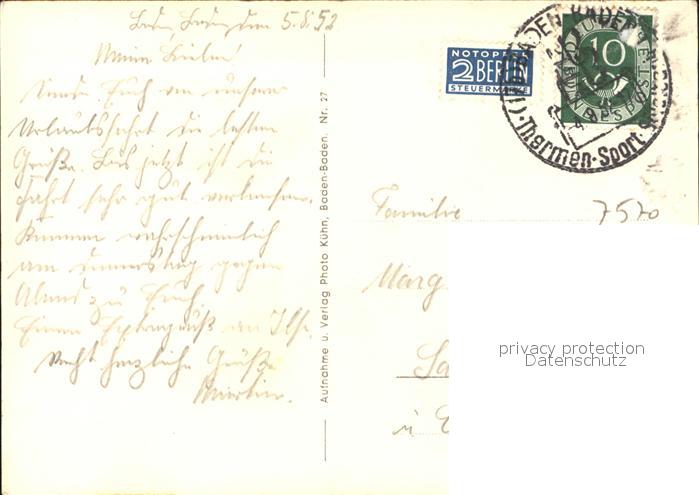 Baden-Baden, den 5.8.52
Meine Lieben!
Sende Euch von unserer
Urlaubsfahrt die besten
Grüße. Bis jetzt ist die
Fahrt sehr gut verlaufen.
Kommen wahrscheinlich
am Donnerstag gegen
Abend zu Euch.
Einen Extragruß an Ilse.
Recht herzliche Grüße
Martin.
Aufnahme u. Verlag Photo Kühn, Baden-Baden. Nr. 27
NOTOPFER
2 BERLIN
STEUERMARKE
10
BUNDESPOST
BADEN-BADEN
Thermen · Sport ·
Familie
7570
Marg
Sa
u
privacy protection
Datenschutz